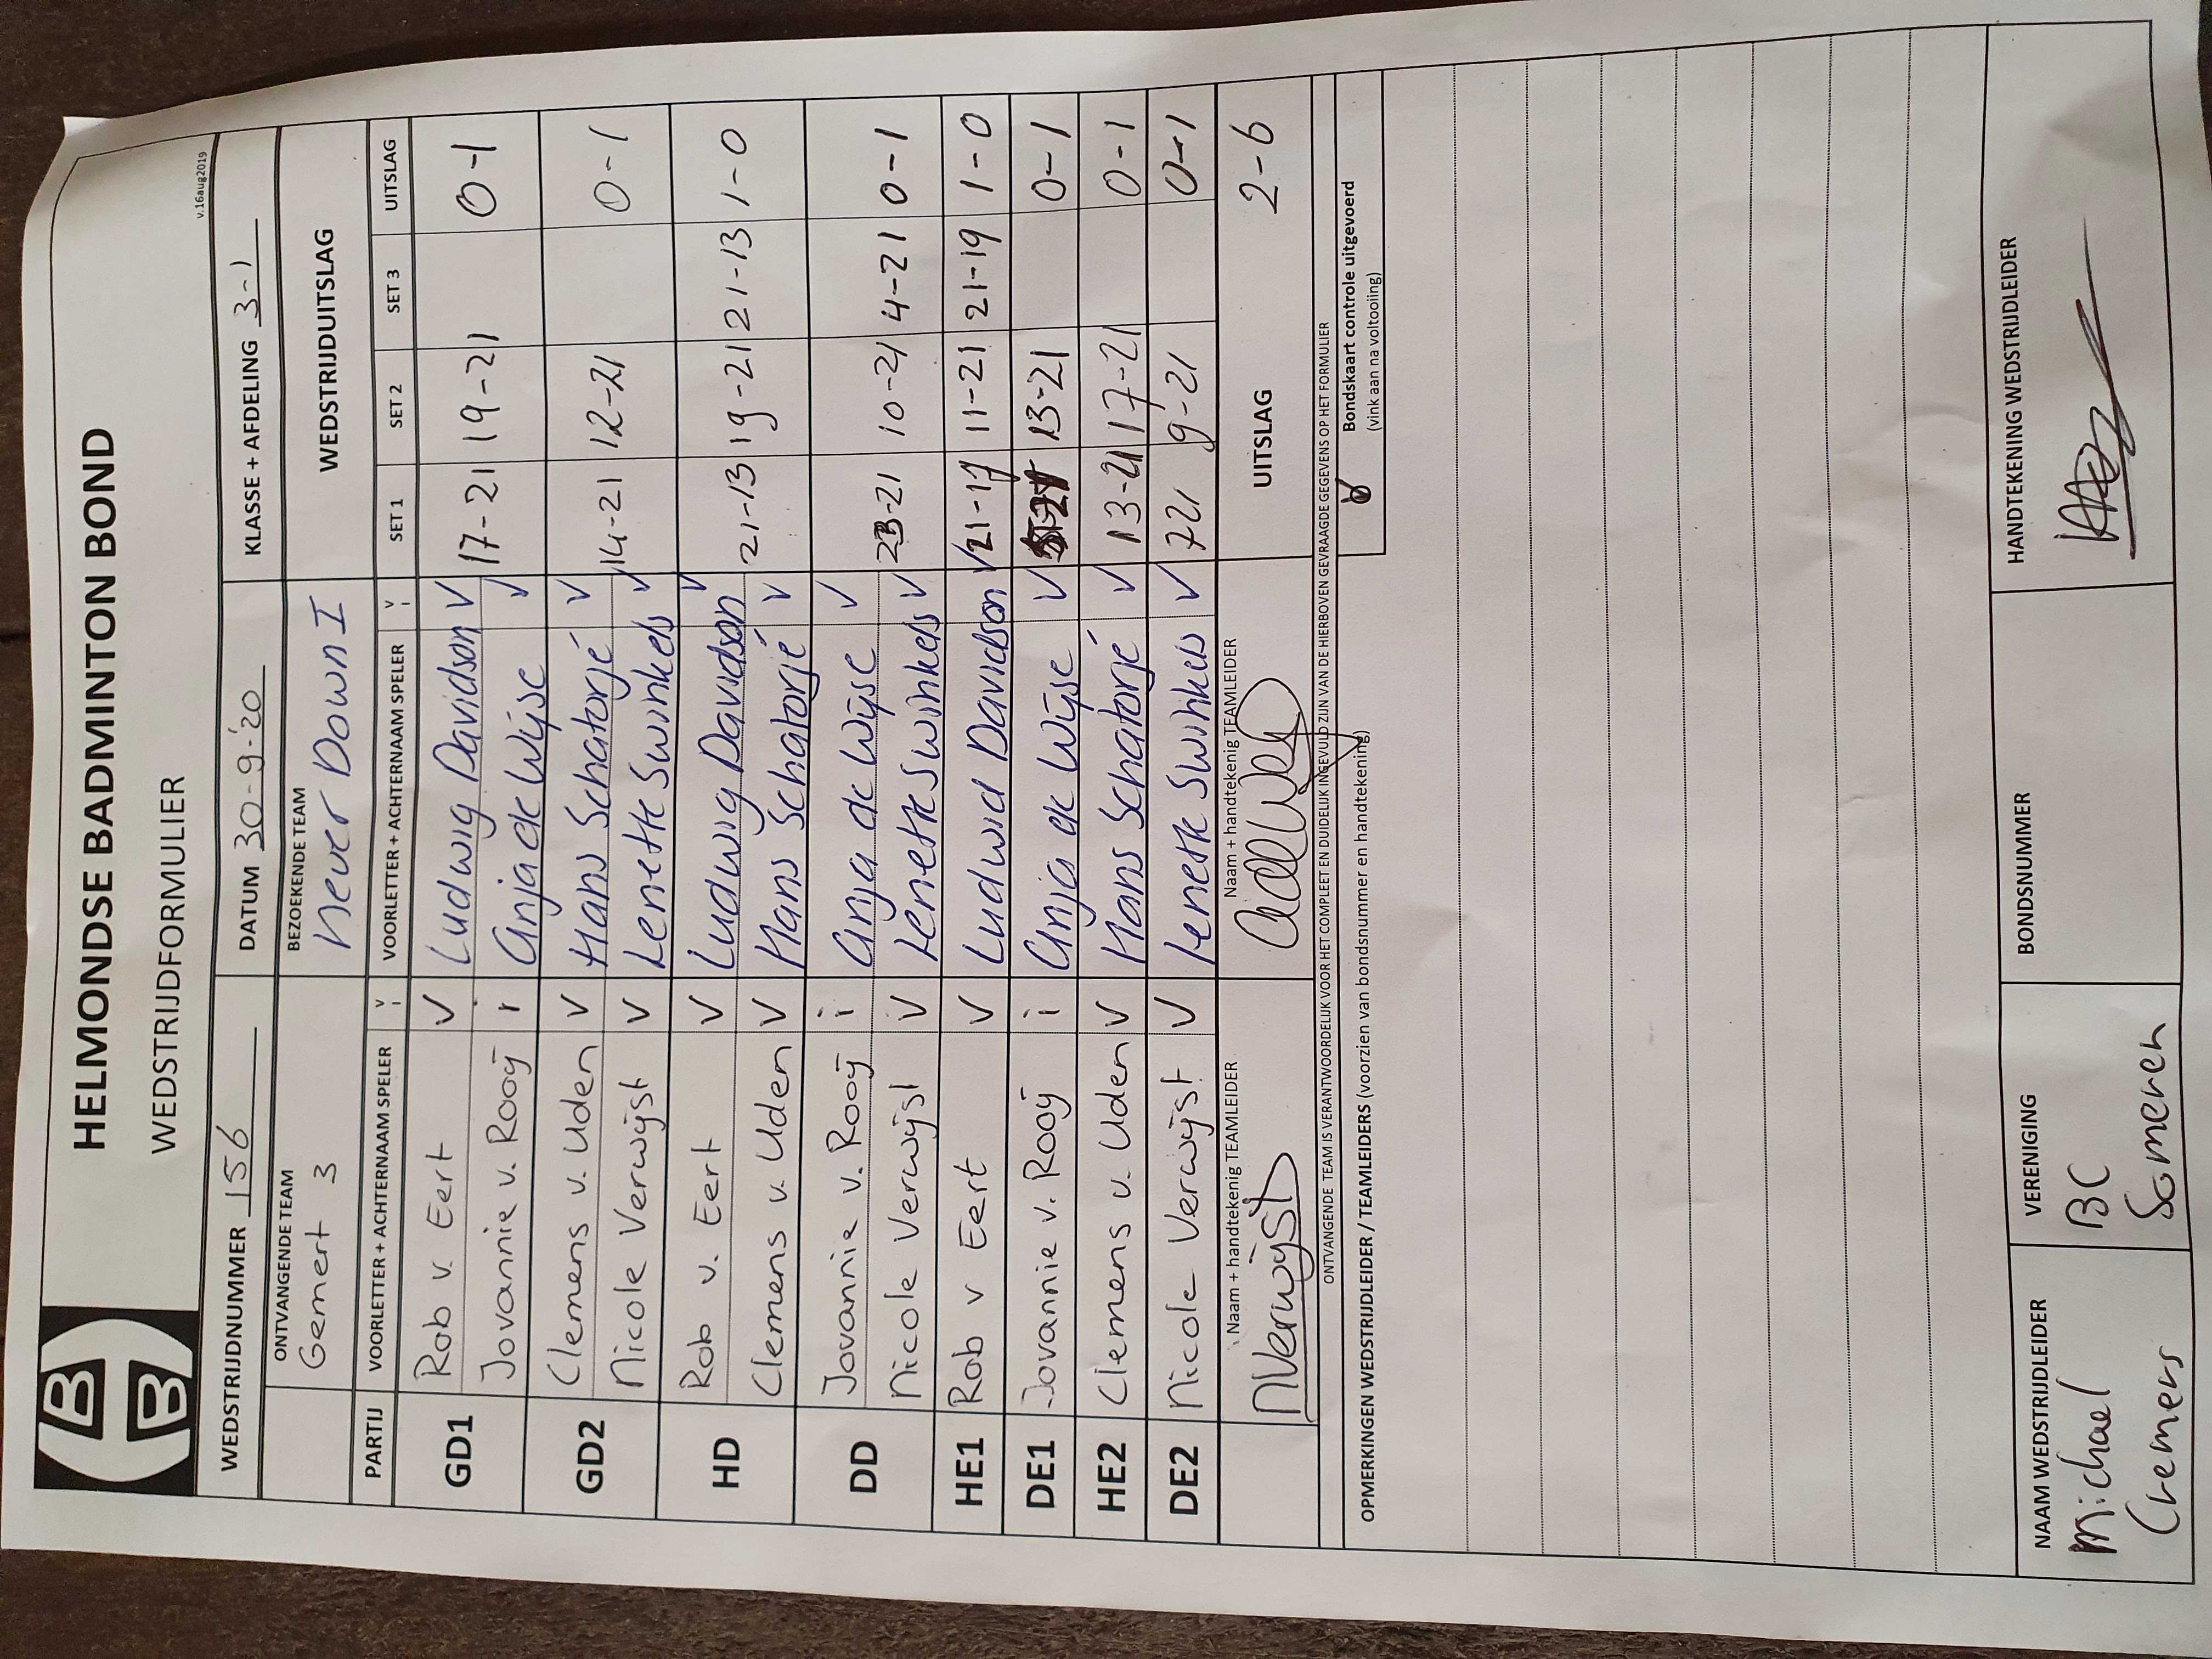 HELMONDSE BADMINTON BOND
WEDSTRIJDFORMULIER
v.16aug2019
WEDSTRIJDNUMMER 156 DATUM 30-9-'20 KLASSE + AFDELING 3-1
ONTVANGENDE TEAM BEZOEKENDE TEAM WEDSTRIJDUITSLAG
Gemert 3 Never Down I
PARTIJ VOORLETTER + ACHTERNAAM SPELER V i VOORLETTER + ACHTERNAAM SPELER V i SET 1 SET 2 SET 3 UITSLAG
GD1 Rob v. Eert V Ludwig Davidson V 17-21 19-21 0-1
Jovannie v. Rooÿ i Anja de Wÿse V
GD2 Clemens v. Uden V Hans Schatorjé V 14-21 12-21 0-1
Nicole Verwÿst V Lenette Swinkels V
HD Rob v. Eert V Ludwig Davidson V 21-13 19-21 21-13 1-0
Clemens v. Uden V Hans Schatorjé V
DD Jovannie v. Rooÿ i Anja de Wÿse V 23-21 10-21 4-21 0-1
Nicole Verwÿst V Lenette Swinkels V
HE1 Rob v Eert V Ludwid Davidson V 21-17 11-21 21-19 1-0
DE1 Jovannie v. Rooÿ i Anja de Wÿse V 13-21 0-1
HE2 Clemens v. Uden V Hans Schatorjé V 13-21 17-21 0-1
DE2 Nicole Verwÿst V Lenette Swinkels V 7-21 9-21 0-1
Naam + handtekenig TEAMLEIDER Naam + handtekenig TEAMLEIDER UITSLAG 2-6
NVerwÿst
ONTVANGENDE TEAM IS VERANTWOORDELIJK VOOR HET COMPLEET EN DUIDELIJK INGEVULD ZIJN VAN DE HIERBOVEN GEVRAAGDE GEGEVENS OP HET FORMULIER
OPMERKINGEN WEDSTRIJDLEIDER / TEAMLEIDERS (voorzien van bondsnummer en handtekening)
Bondskaart controle uitgevoerd
(vink aan na voltooiing)
NAAM WEDSTRIJDLEIDER VERENIGING BONDSNUMMER HANDTEKENING WEDSTRIJDLEIDER
Michael BC
Cremers Someren